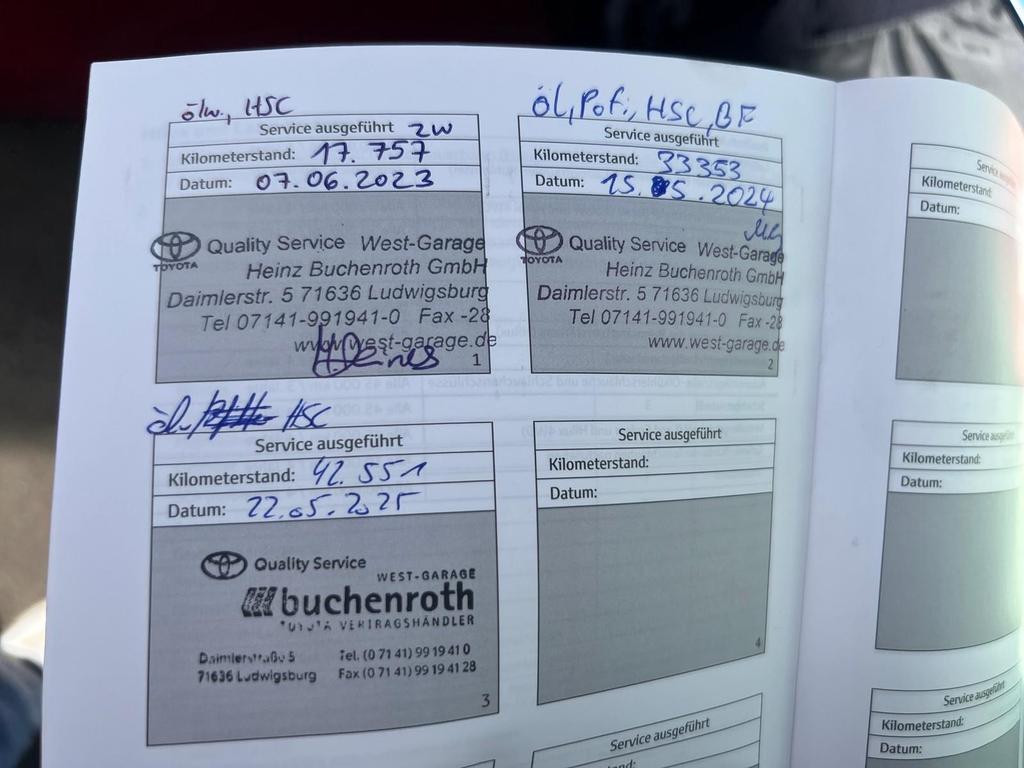 ölw., HSC
Service ausgeführt ZW
Kilometerstand: 17.757
Datum: 07.06.2023
TOYOTA
Quality Service West-Garage
Heinz Buchenroth GmbH
Daimlerstr. 5 71636 Ludwigsburg
Tel 07141-991941-0 Fax -28
www.west-garage.de
1
öl, Pofi, HSC, BF
Service ausgeführt
Kilometerstand: 33353
Datum: 15.05.2024
TOYOTA
Quality Service West-Garage
Heinz Buchenroth GmbH
Daimlerstr. 5 71636 Ludwigsburg
Tel 07141-991941-0 Fax -28
www.west-garage.de
2
öl, HSC
Service ausgeführt
Kilometerstand: 42.551
Datum: 22.05.2025
Quality Service
WEST-GARAGE
buchenroth
TOYOTA VERTRAGSHÄNDLER
Daimlerstraße 5 Tel. (0 71 41) 99 19 41 0
71636 Ludwigsburg Fax (0 71 41) 99 19 41 28
3
Service ausgeführt
Kilometerstand:
Datum:
4
Service ausgeführt
Kilometerstand:
Datum:
Service ausgeführt
Kilometerstand:
Datum:
Service ausgeführt
Service ausgeführt
Kilometerstand:
Datum: